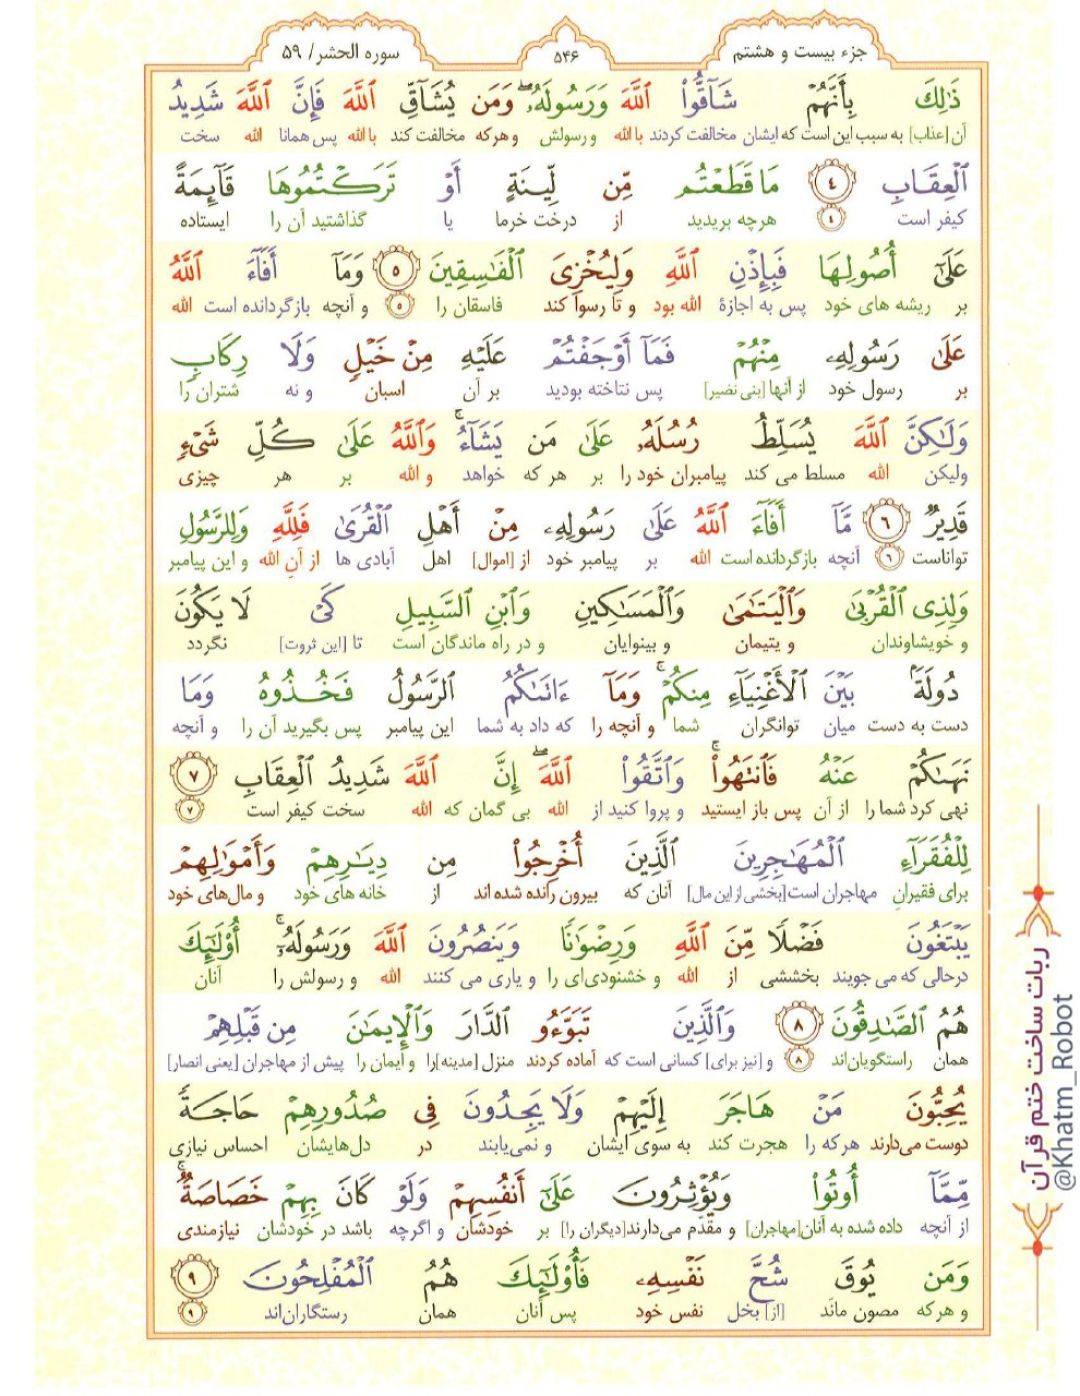 جزء بیست و هشتم
۵۴۶
سوره الحشر/ ۵۹
ذَٰلِكَ بِأَنَّهُمْ شَآقُّوا۟ ٱللَّهَ وَرَسُولَهُۥ ۖ وَمَن يُشَآقِّ ٱللَّهَ فَإِنَّ ٱللَّهَ شَدِيدُ
آن [عذاب] به سبب این است که ایشان مخالفت کردند با الله و رسولش و هرکه مخالفت کند با الله پس همانا الله سخت
ٱلْعِقَابِ ٤ مَا قَطَعْتُم مِّن لِّينَةٍ أَوْ تَرَكْتُمُوهَا قَآئِمَةً
کیفر است ٤ هرچه بریدید از درخت خرما یا گذاشتید آن را ایستاده
عَلَىٰٓ أُصُولِهَا فَبِإِذْنِ ٱللَّهِ وَلِيُخْزِىَ ٱلْفَـٰسِقِينَ ٥ وَمَآ أَفَآءَ ٱللَّهُ
بر ریشه های خود پس به اجازهٔ الله بود و تا رسوا کند فاسقان را ٥ و آنچه بازگردانده است الله
عَلَىٰ رَسُولِهِۦ مِنْهُمْ فَمَآ أَوْجَفْتُمْ عَلَيْهِ مِنْ خَيْلٍ وَلَا رِكَابٍ
بر رسول خود از آنها [بنی نضیر] پس نتاخته بودید بر آن اسبان و نه شتران را
وَلَـٰكِنَّ ٱللَّهَ يُسَلِّطُ رُسُلَهُۥ عَلَىٰ مَن يَشَآءُ ۚ وَٱللَّهُ عَلَىٰ كُلِّ شَىْءٍ
ولیکن الله مسلط می کند پیامبران خود را بر هر که خواهد و الله بر هر چیزی
قَدِيرٌ ٦ مَّآ أَفَآءَ ٱللَّهُ عَلَىٰ رَسُولِهِۦ مِنْ أَهْلِ ٱلْقُرَىٰ فَلِلَّهِ وَلِلرَّسُولِ
تواناست ٦ آنچه بازگردانده است الله بر پیامبر خود از [اموال] اهل آبادی ها از آنِ الله و این پیامبر
وَلِذِى ٱلْقُرْبَىٰ وَٱلْيَتَـٰمَىٰ وَٱلْمَسَـٰكِينِ وَٱبْنِ ٱلسَّبِيلِ كَىْ لَا يَكُونَ
و خویشاوندان و یتیمان و بینوایان و در راه ماندگان است تا [این ثروت] نگردد
دُولَةًۢ بَيْنَ ٱلْأَغْنِيَآءِ مِنكُمْ ۚ وَمَآ ءَاتَىٰكُمُ ٱلرَّسُولُ فَخُذُوهُ وَمَا
دست به دست میان توانگران شما و آنچه را که داد به شما این پیامبر پس بگیرید آن را و آنچه
نَهَىٰكُمْ عَنْهُ فَٱنتَهُوا۟ ۚ وَٱتَّقُوا۟ ٱللَّهَ ۖ إِنَّ ٱللَّهَ شَدِيدُ ٱلْعِقَابِ ٧
نهی کرد شما را از آن پس باز ایستید و پروا کنید از الله بی گمان که الله سخت کیفر است ٧
لِلْفُقَرَآءِ ٱلْمُهَـٰجِرِينَ ٱلَّذِينَ أُخْرِجُوا۟ مِن دِيَـٰرِهِمْ وَأَمْوَٰلِهِمْ
برای فقیران مهاجران است [بخشی از این مال] آنان که بیرون رانده شده اند از خانه های خود و مال‌های خود
يَبْتَغُونَ فَضْلًا مِّنَ ٱللَّهِ وَرِضْوَٰنًا وَيَنصُرُونَ ٱللَّهَ وَرَسُولَهُۥٓ ۚ أُو۟لَـٰٓئِكَ
درحالی که می جویند بخششی از الله و خشنودی‌ای را و یاری می کنند الله و رسولش را آنان
هُمُ ٱلصَّـٰدِقُونَ ٨ وَٱلَّذِينَ تَبَوَّءُو ٱلدَّارَ وَٱلْإِيمَـٰنَ مِن قَبْلِهِمْ
همان راستگویان‌اند ٨ و [نیز برای] کسانی است که آماده کردند منزل [مدینه] را و ایمان را پیش از مهاجران [یعنی انصار]
يُحِبُّونَ مَنْ هَاجَرَ إِلَيْهِمْ وَلَا يَجِدُونَ فِى صُدُورِهِمْ حَاجَةً
دوست می‌دارند هرکه را هجرت کند به سوی ایشان و نمی‌یابند در دل‌هایشان احساس نیازی
مِّمَّآ أُوتُوا۟ وَيُؤْثِرُونَ عَلَىٰٓ أَنفُسِهِمْ وَلَوْ كَانَ بِهِمْ خَصَاصَةٌ ۚ
از آنچه داده شده به آنان [مهاجران] و مقدّم می‌دارند [دیگران را] بر خودشان و اگرچه باشد در خودشان نیازمندی
وَمَن يُوقَ شُحَّ نَفْسِهِۦ فَأُو۟لَـٰٓئِكَ هُمُ ٱلْمُفْلِحُونَ ٩
و هرکه مصون ماند [از] بخل نفس خود پس آنان همان رستگاران‌اند ٩
ربات ساخت ختم قرآن
@Khatm_Robot